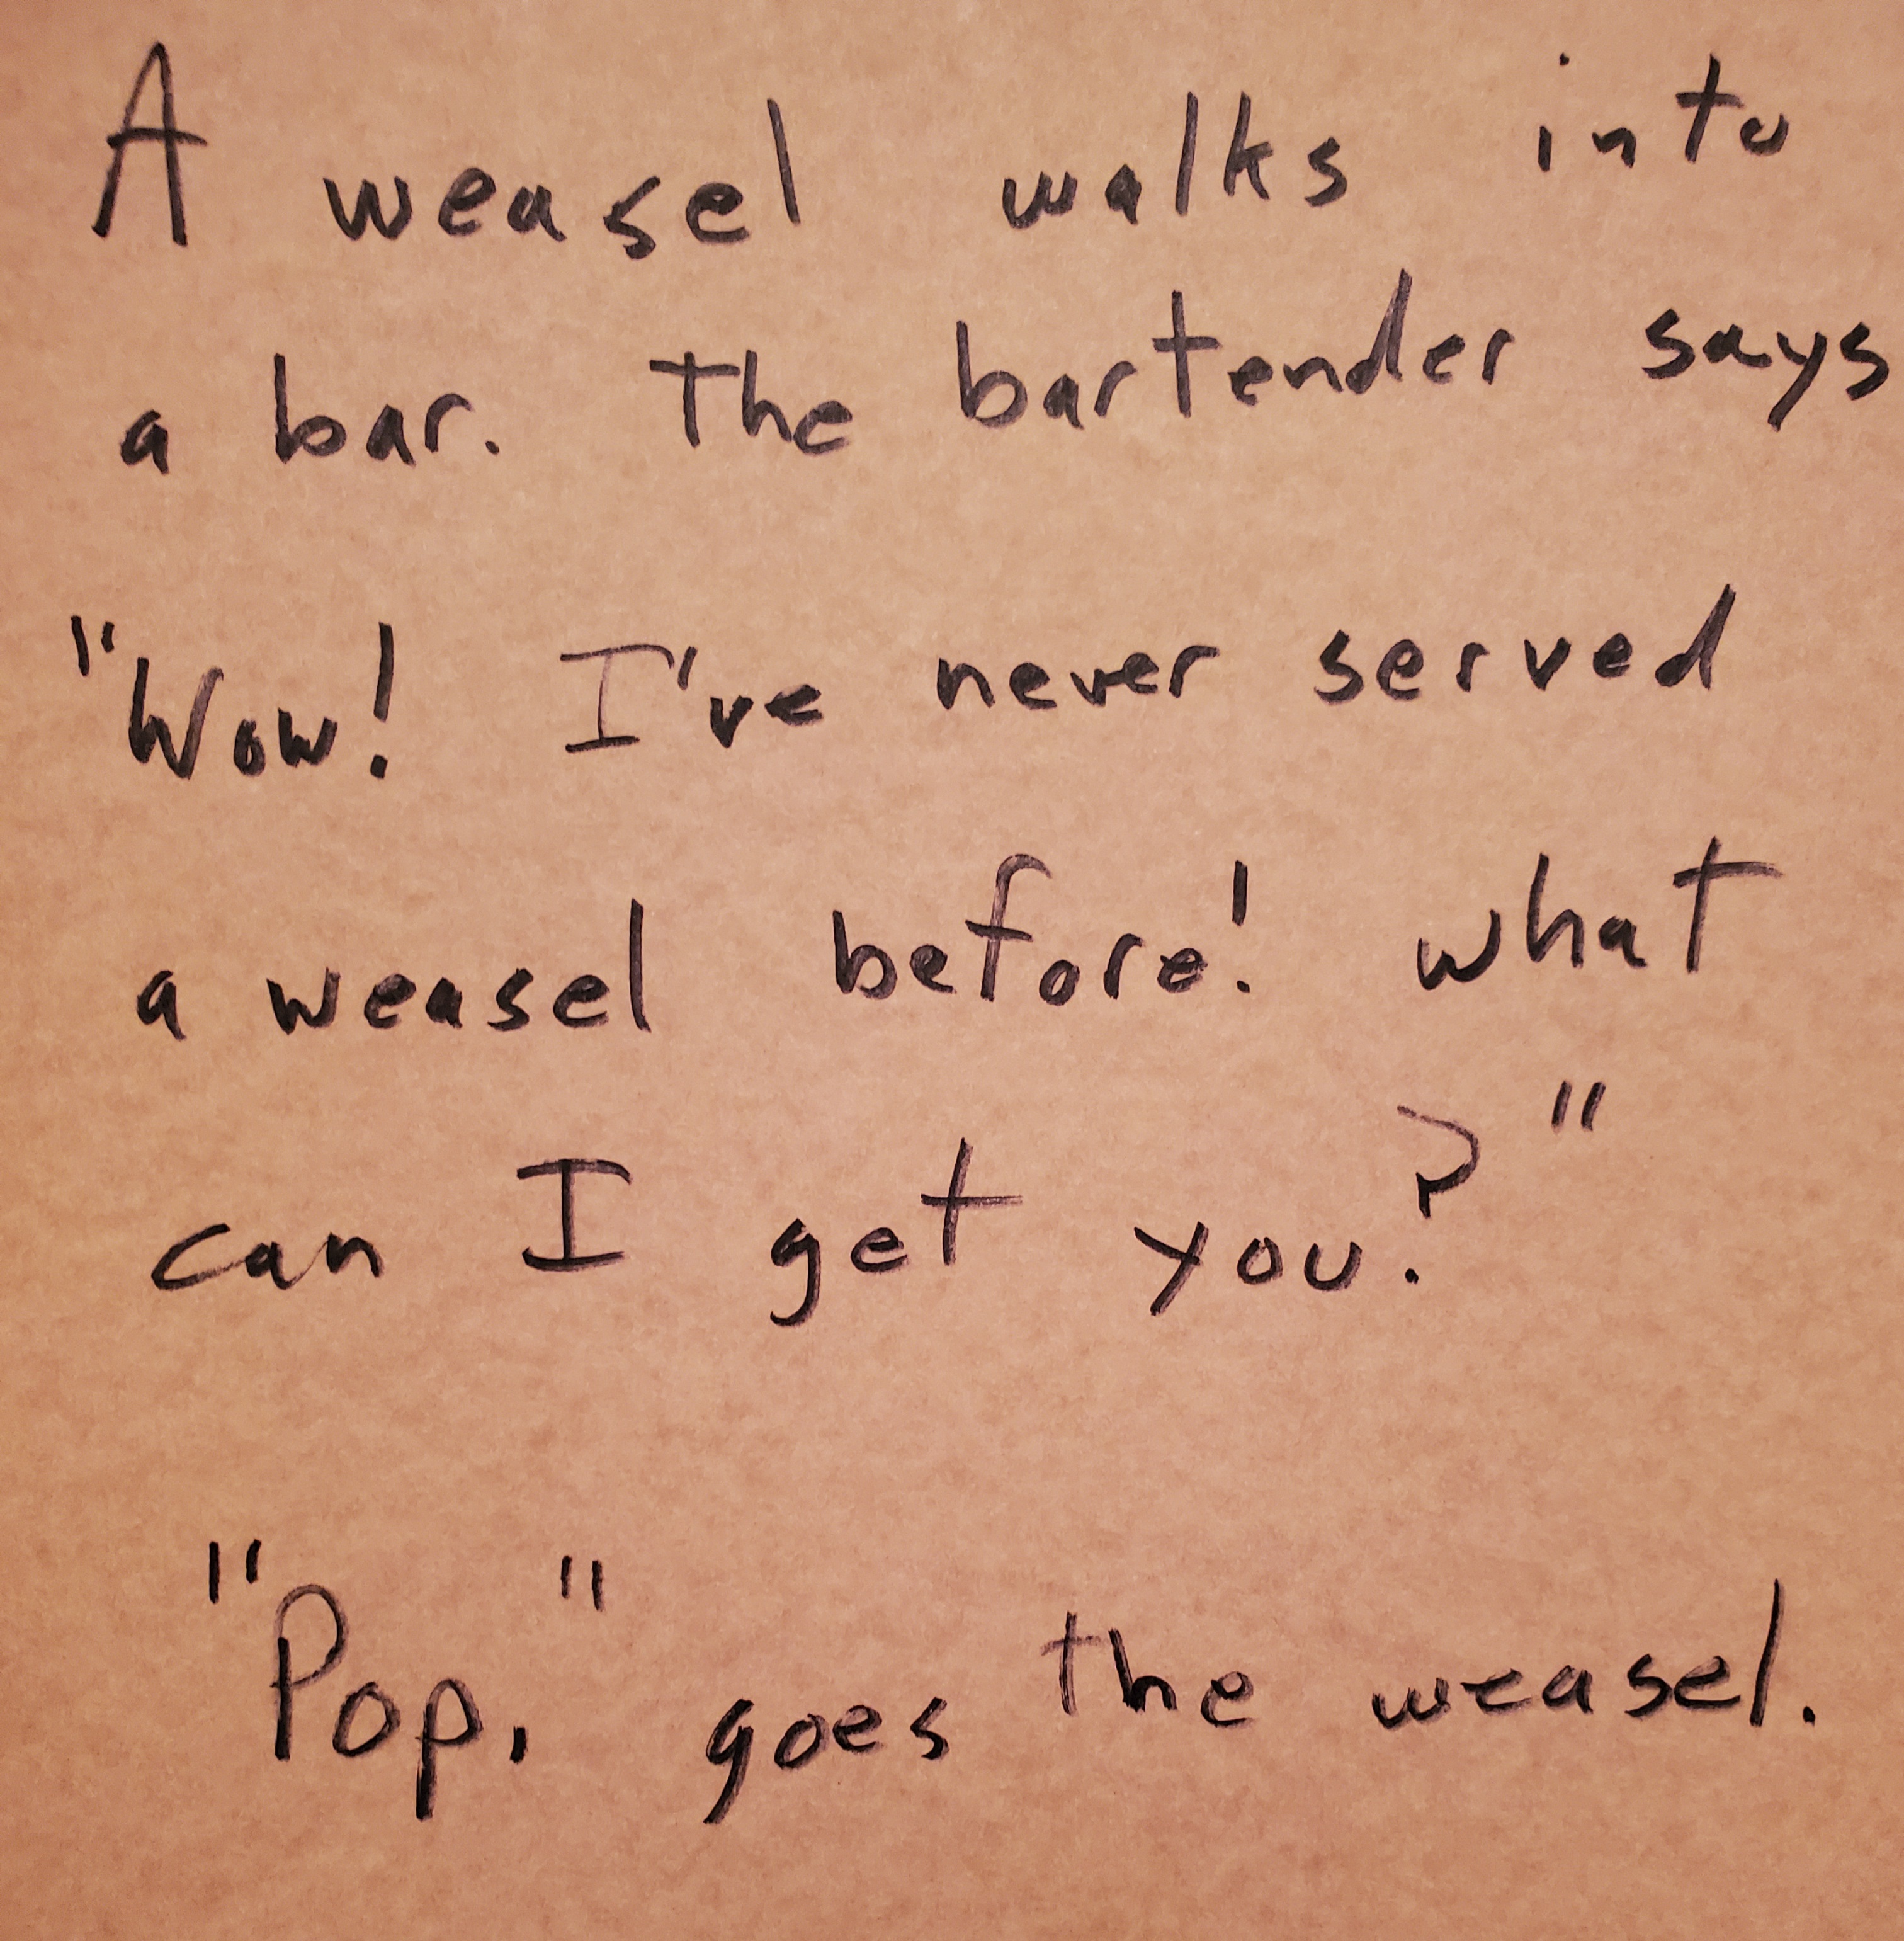 A weasel walks into
a bar. The bartender says
"Wow! I've never served
a weasel before! what
can I get you?"
"Pop," goes the weasel.